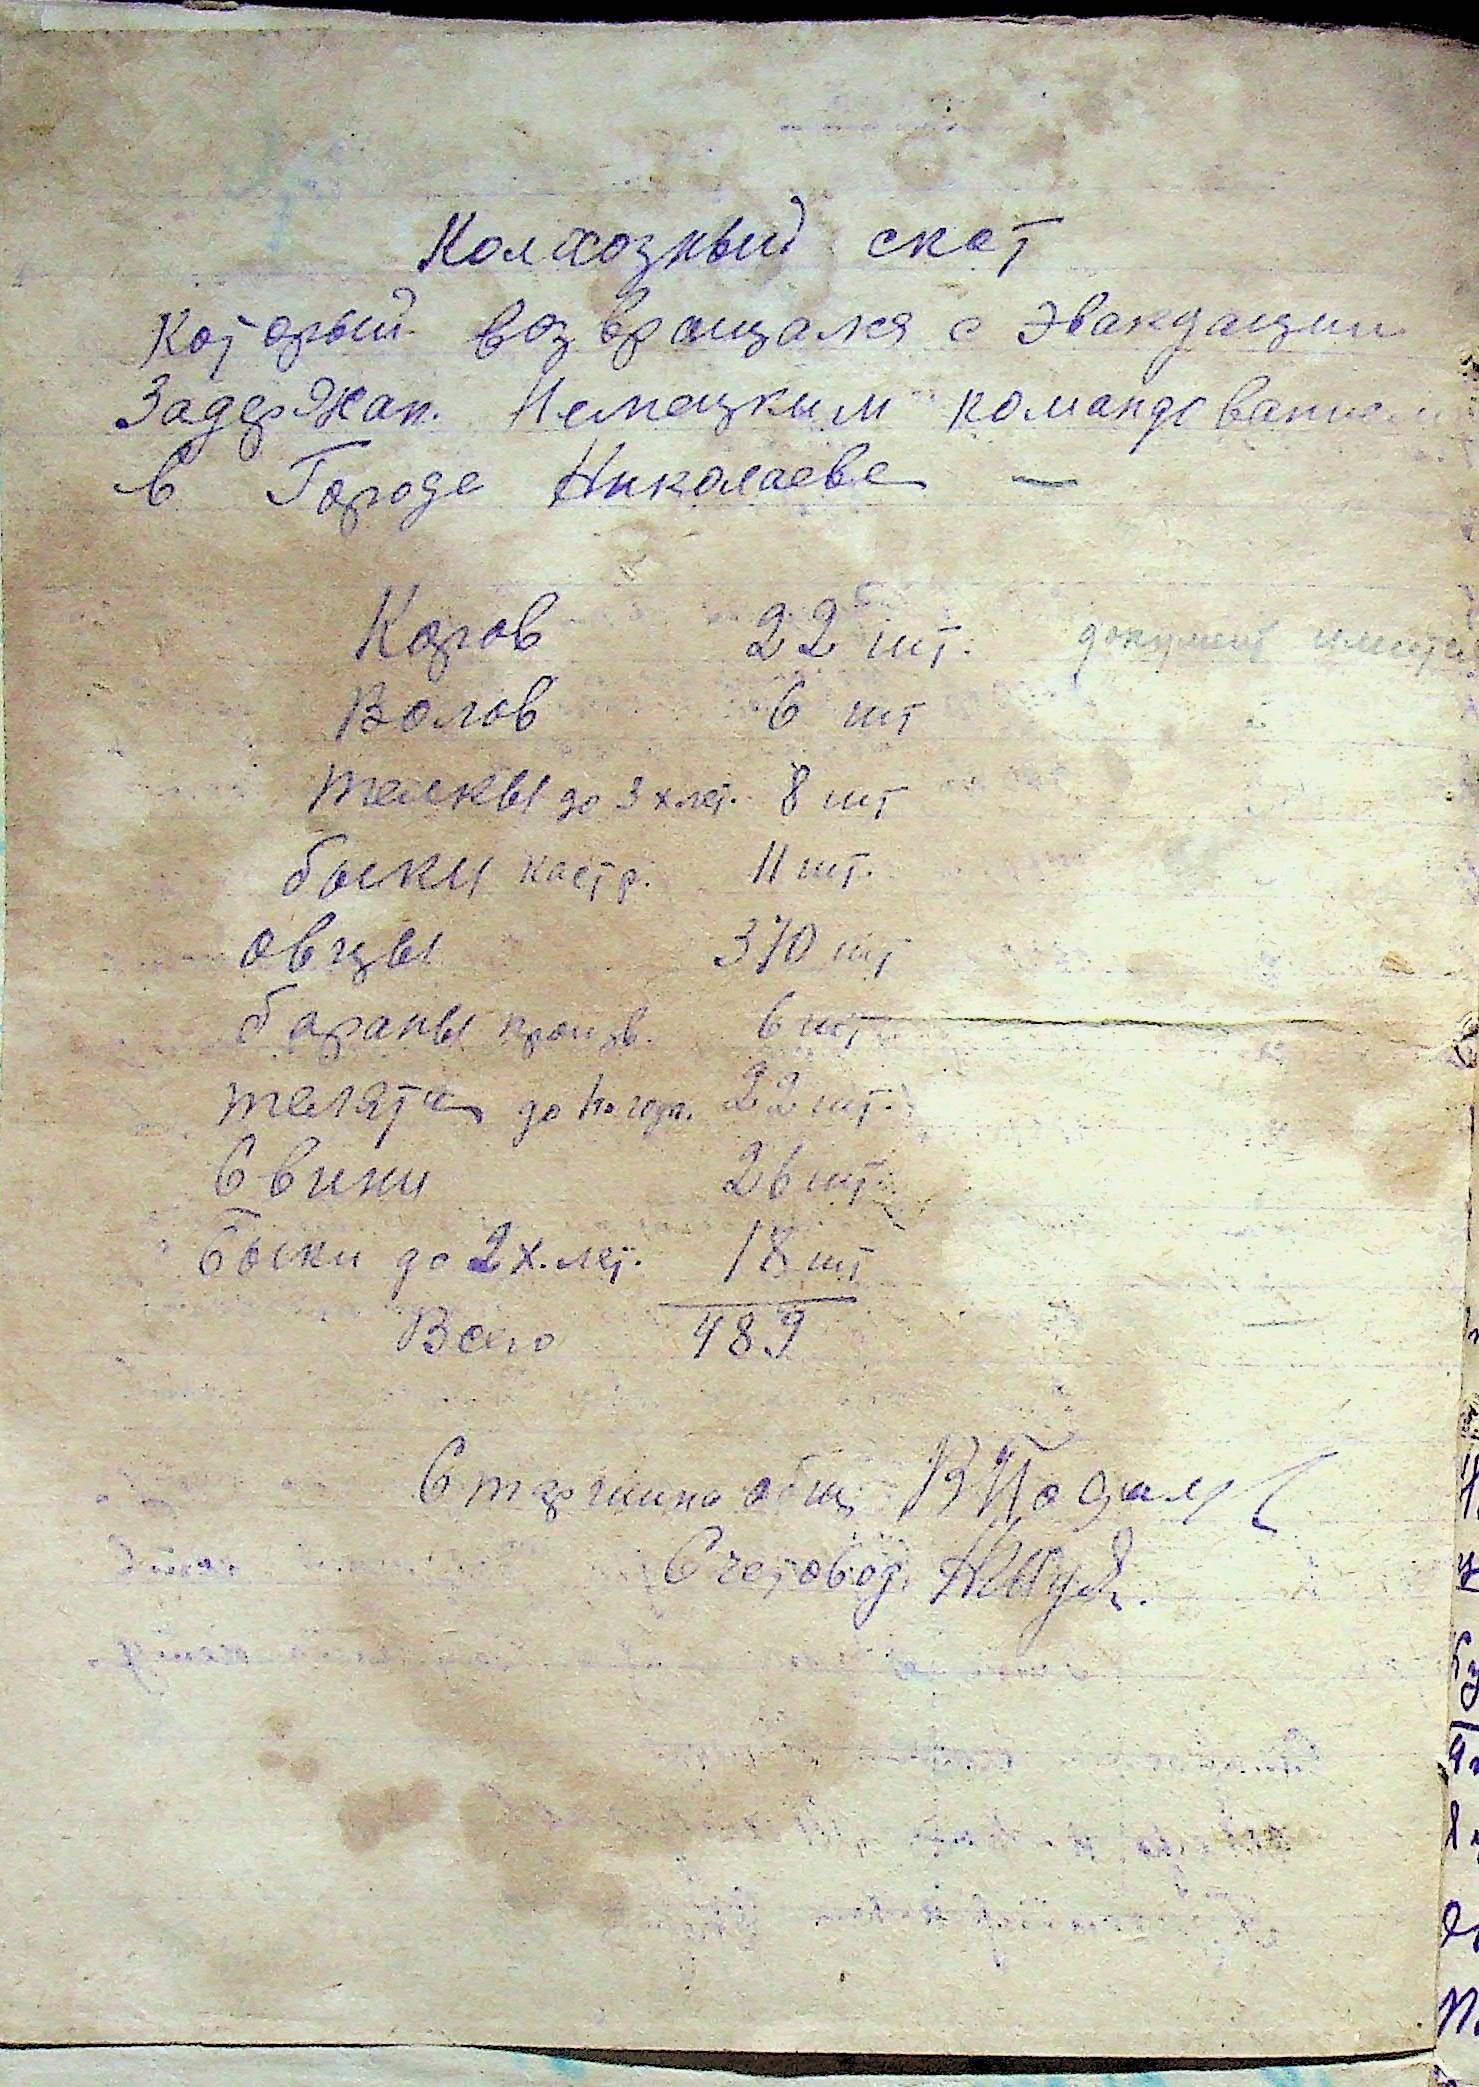 Колхозный скот
который возвращался с эвакуации
Задержан. Немецким командованием
в Городе Николаеве —
Коров 22 шт. документ имеется
Волов 6 шт
телкы до 3 х лет. 8 шт
быки кастр. 11 шт.
овцы 370 шт
бараны произв. 6 шт
телята до 1го года. 22 шт.
Свини 26 шт
быки до 2х. лет. 18 шт
Всего 489
Старшина общ
Счетовод.